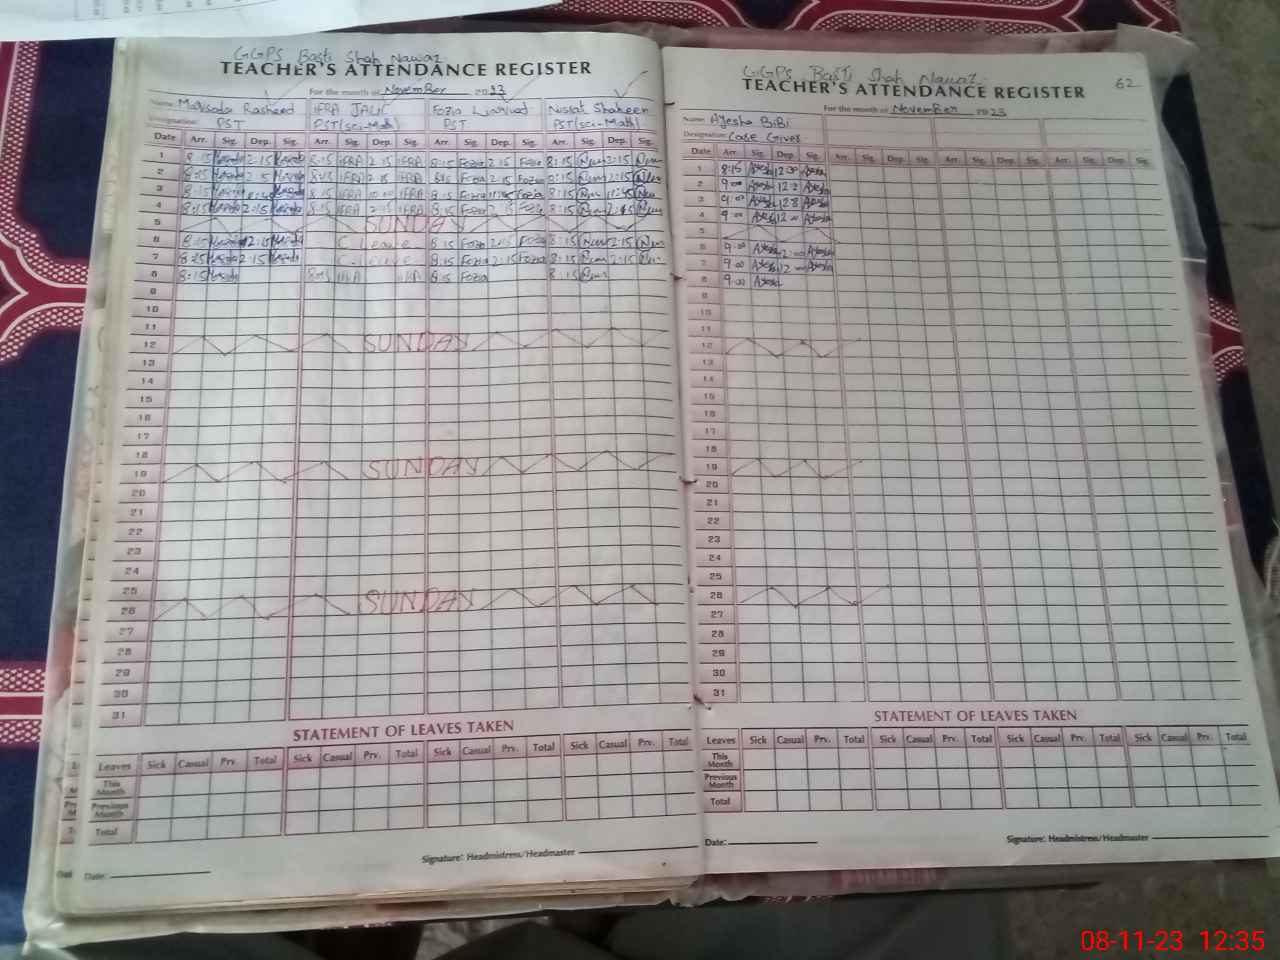 GGPS Basti Shah Nawaz
TEACHER'S ATTENDANCE REGISTER
For the month of November 2023
Name: Rasheed IFRA Fozia Shaheen
Designation: PST PST(sci-Math) PST PST(sci-Math)
Date Arr. Sig. Dep. Sig. Arr. Sig. Dep. Sig. Arr. Sig. Dep. Sig. Arr. Sig. Dep. Sig.
1 8:15 2:15 8:15 IFRA 2:15 IFRA 8:15 Fozia 2:15 Fozia 8:15 2:15
2 8:15 IFRA 2:15 IFRA 8:15 Fozia 2:15 Fozia 8:15 2:15
3 8:15 8:15 IFRA IFRA 8:15 Fozia Fozia 8:15
4 8:15 2:15 8:15 IFRA 2:15 IFRA 8:15 Fozia 2:15 Fozia 8:15 2:15
5 SUNDAY
6 8:15 2:15 C. Leave 8:15 Fozia 2:15 Fozia 8:15 2:15
7 8:15 2:15 C. Leave 8:15 Fozia 2:15 Fozia 8:15 2:15
8 8:15 IFRA IFRA 8:15 Fozia 8:15
9
10
11
12 SUNDAY
13
14
15
16
17
18
19 SUNDAY
20
21
22
23
24
25
26 SUNDAY
27
28
29
30
31
STATEMENT OF LEAVES TAKEN
Leaves Sick Casual Prv. Total Sick Casual Prv. Total Sick Casual Prv. Total Sick Casual Prv. Total
This Month
Previous Month
Total
Signature: Headmistress/Headmaster
Date:
GGPS Basti Shah Nawaz
62
TEACHER'S ATTENDANCE REGISTER
For the month of November 2023
Name: Ayesha BiBi
Designation: Case Giver
Date Arr. Sig. Dep. Sig. Arr. Sig. Dep. Sig. Arr. Sig. Dep. Sig. Arr. Sig. Dep. Sig.
1 8:15 Ayesha Ayesha
2 9:00 Ayesha Ayesha
3 9:00 Ayesha Ayesha
4 9:00 Ayesha 12:00 Ayesha
5
6 9:00 Ayesha 12:00 Ayesha
7 9:00 Ayesha 12:00 Ayesha
8 9:00 Ayesha
9
10
11
12
13
14
15
16
17
18
19
20
21
22
23
24
25
26
27
28
29
30
31
STATEMENT OF LEAVES TAKEN
Leaves Sick Casual Prv. Total Sick Casual Prv. Total Sick Casual Prv. Total Sick Casual Prv. Total
This Month
Previous Month
Total
Signature: Headmistress/Headmaster
Date:
08-11-23 12:35